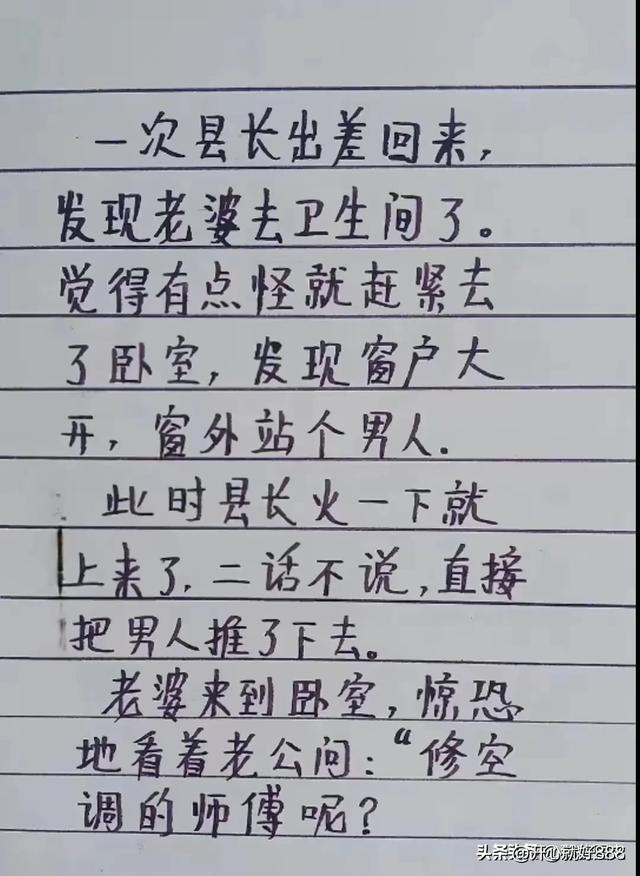 一次县长出差回来，
发现老婆去卫生间了。
觉得有点怪就赶紧去
了卧室，发现窗户大
开，窗外站个男人.
此时县长火一下就
上来了，二话不说，直接
把男人推了下去。
老婆来到卧室，惊恐
地看着老公问：“修空
调的师傅呢？
头条 @开心就好888